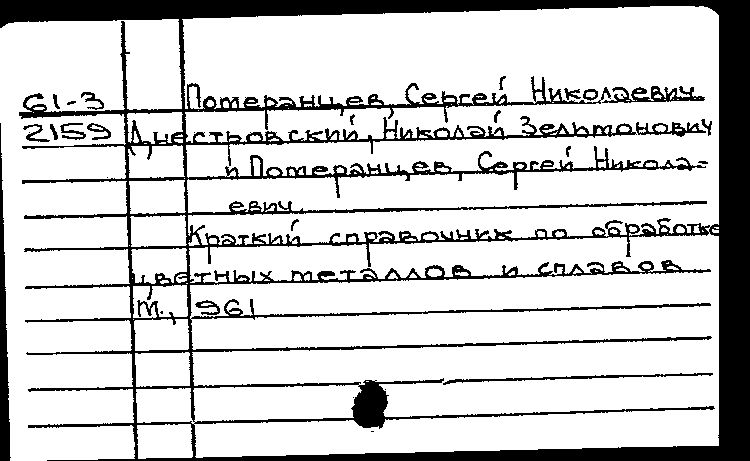 61-3 Померанцев, Сергей Николаевич.
2159 Днестровский, Николай Зельманович
и Померанцев, Сергей Никола-
евич.
Краткий справочник по обработке
цветных металлов и сплавов
М., 961